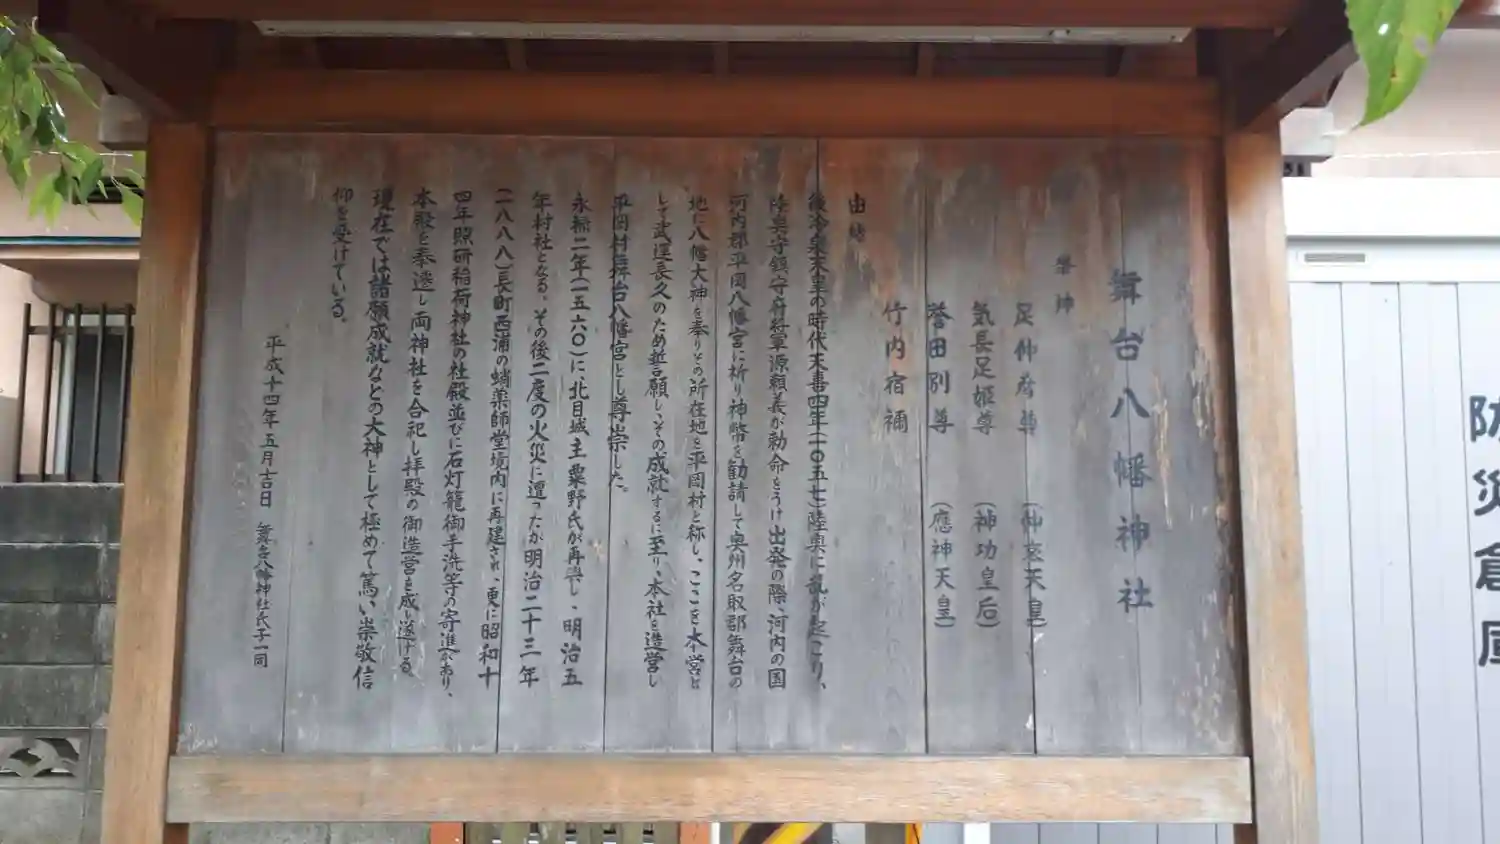 舞台八幡神社
祭神
足仲彦尊 (仲哀天皇)
気長足姫尊 (神功皇后)
誉田別尊 (應神天皇)
竹内宿禰
由緒
後冷泉天皇の時代天喜四年(一〇五七)陸奥に乱が起こり、
陸奥守鎮守府将軍源頼義が勅命をうけ出発の際、河内の国
河内郡平岡八幡宮に祈り神幣を勧請して奥州名取郡舞台の
地に八幡大神を奉りその所在地を平岡村と称し、ここを本営と
して武運長久のため誓願し、その成就するに至り、本社を造営し
平岡村舞台八幡宮とし尊崇した。
永禄二年(一五六〇)に、北目城主粟野氏が再興し、明治五
年村社となる。その後二度の火災に遭ったが明治二十三年
(一八八八)長町西浦の蛸薬師堂境内に再建され、更に昭和十
四年照研稲荷神社の社殿並びに石灯籠御手洗等の寄進があり、
本殿を奉遷し両神社を合祀し拝殿の御造営を成し遂げる。
現在では諸願成就などの大神として極めて篤い崇敬信
仰を受けている。
平成十四年五月吉日 舞台八幡神社氏子一同
防災倉庫